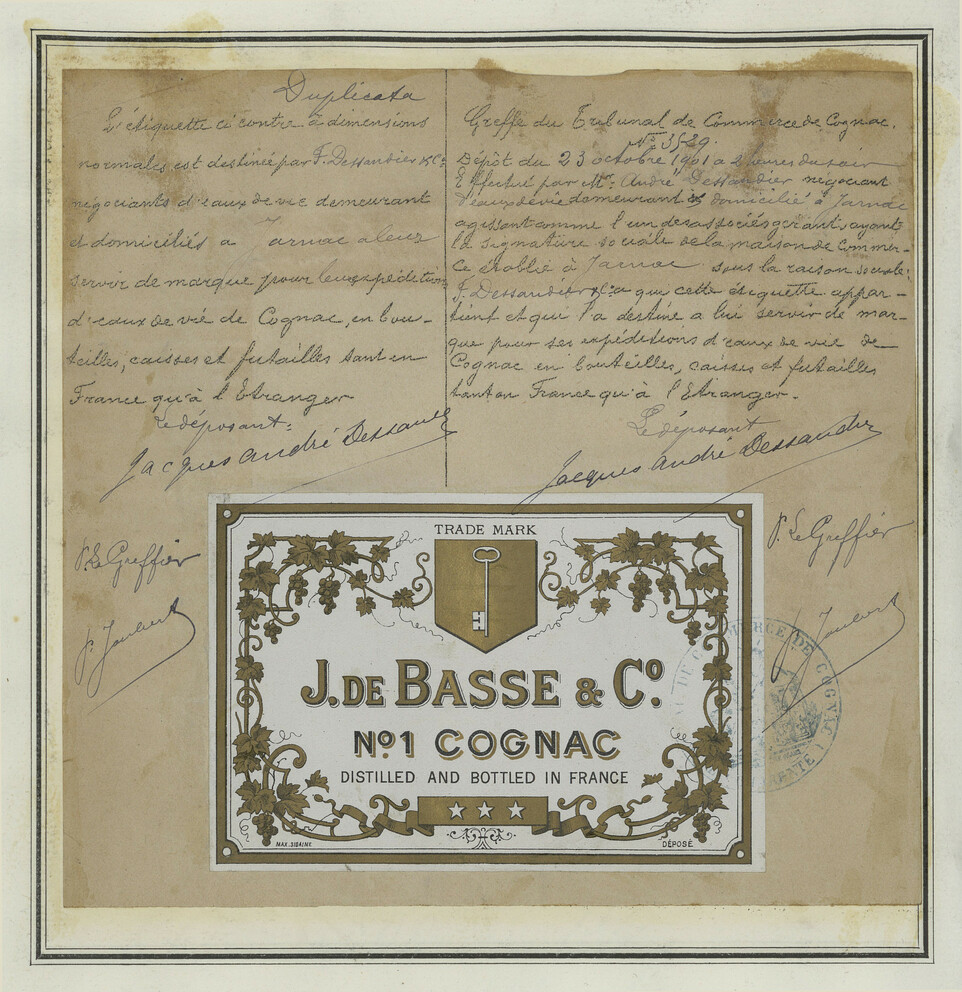 Duplicata
L'étiquette ci contre à dimensions
normales est destinée par J. Dessandier & Cie
négociants d'eaux de vie demeurant
et domiciliés à Jarnac à leur
servir de marque pour leurs expéditions
d'eaux de vie de Cognac, en bou-
teilles, caisses et futailles tant en
France qu'à l'Etranger
Le déposant:
Jacques André Dessandier
P. Le Greffier
Greffe du Tribunal de Commerce de Cognac.
No 3529.
Dépôt du 23 octobre 1901 à 2 heures du soir
Effectué par Mr. André Dessandier négociant
d'eaux de vie demeurant & domicilié à Jarnac
agissant comme l'un des associés gérant, ayant
la signature sociale de la maison de Commer-
ce établie à Jarnac sous la raison sociale:
J. Dessandier & Cie a que cette étiquette appar-
tient et qui l'a destiné a lui servir de mar-
que pour ses expéditions d'eaux de vie de
Cognac en bouteilles, caisses et futailles
tant en France qu'à l'Etranger.
Le déposant
Jacques André Dessandier
P. Le Greffier
TRADE MARK
J. DE BASSE & Co.
No. 1 COGNAC
DISTILLED AND BOTTLED IN FRANCE
MAX. SIDAINE
DÉPOSÉ
COMMERCE DE COGNAC